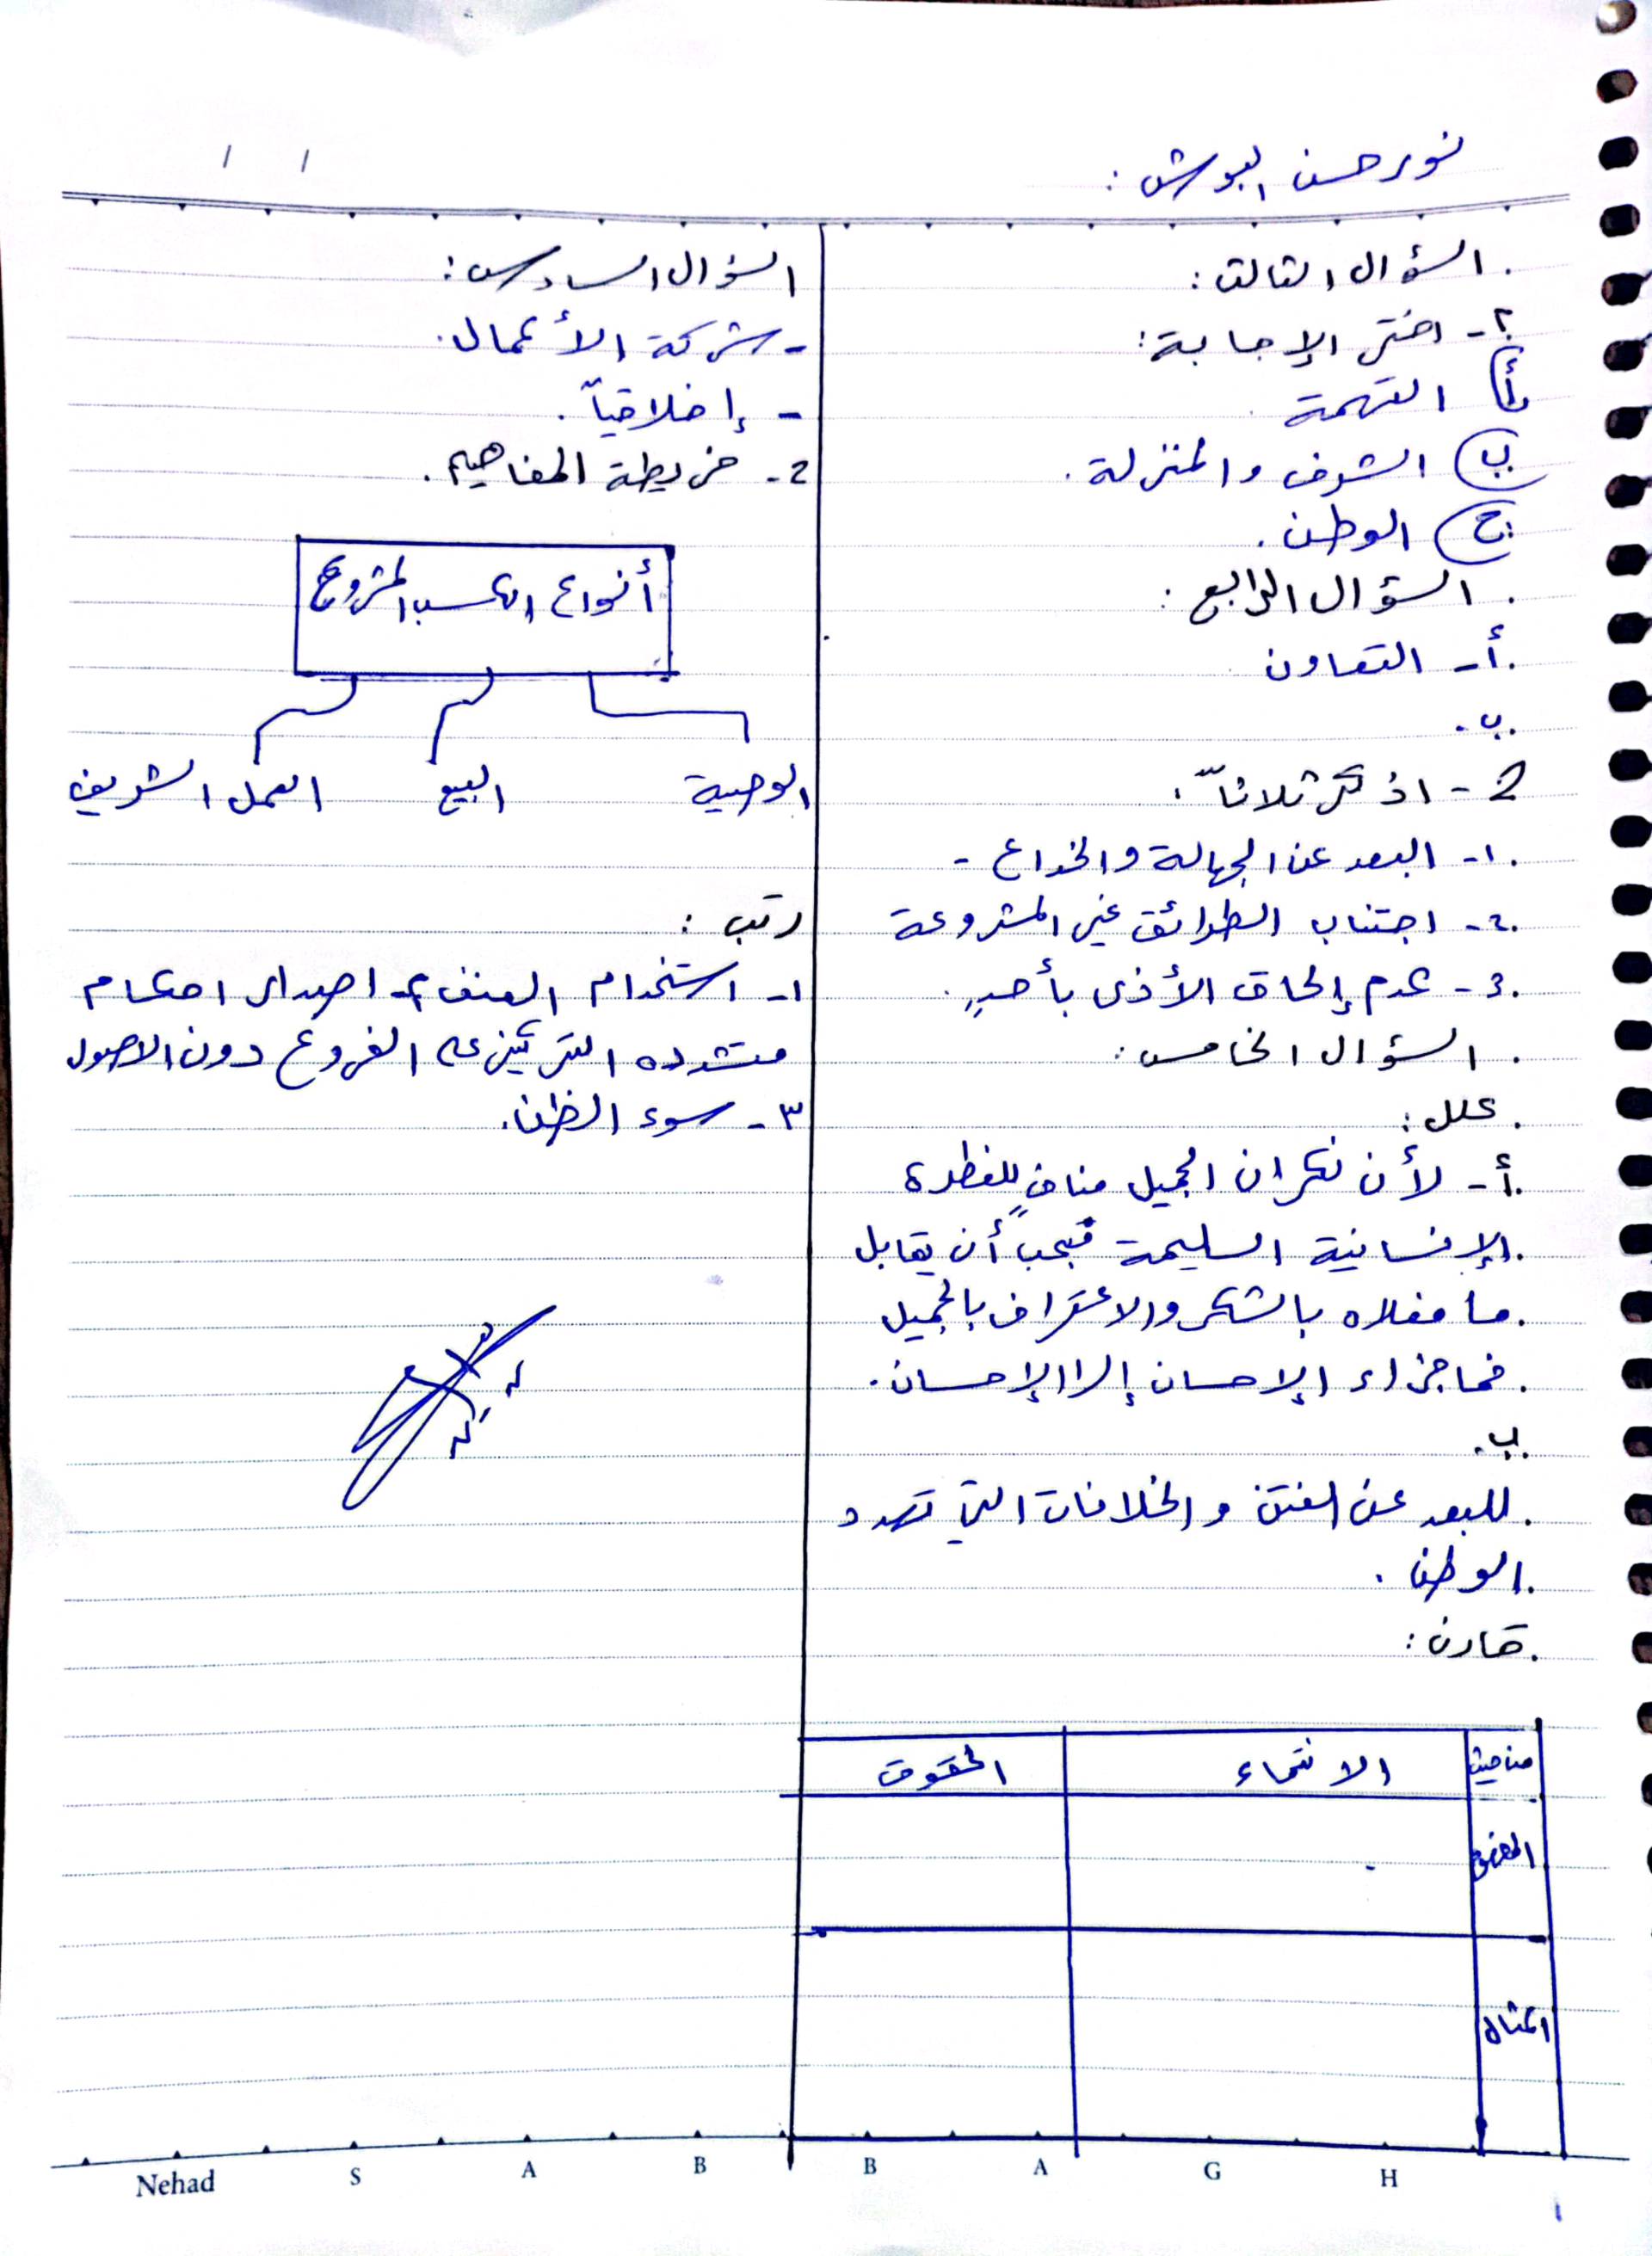 نور حسن البوش :
/ /
السؤال الثالث :
٢- اختر الإجابة :
أ) التهمة
ب) الشرف والمنزلة .
ج) الوطن .
السؤال الرابع :
أ- التعاون
ب.
2- اذكر ثلاثاً .
١- البعد عن الجهالة والخداع -
٢- اجتناب الطرائق غير المشروعة
3- عدم إلحاق الأذى بأحدٍ .
السؤال الخامس :
علل :
أ- لأن نكران الجميل منافٍ للفطرة
الإنسانية السليمة فيجب أن يقابل
ما فعلاه بالشكر والاعتراف بالجميل
فما جزاء الإحسان إلا الإحسان .
ب.
للبعد عن الفتن والخلافات التي تهدد
الوطن .
قارن :
من حيث الانتماء الحقوق
المفهوم
المثال
السؤال السادس :
- شركة الأعمال .
- إخلاقياً .
2- خريطة المفاهيم .
أنواع الكسب المشروع
الوصية البيع العمل الشريف
رتب :
١- استخدام العنف ٢- اصدار احكام
متشدده التركيز على الفروع دون الاصول
٣- سوء الظن .
Nehad S A B B A G H